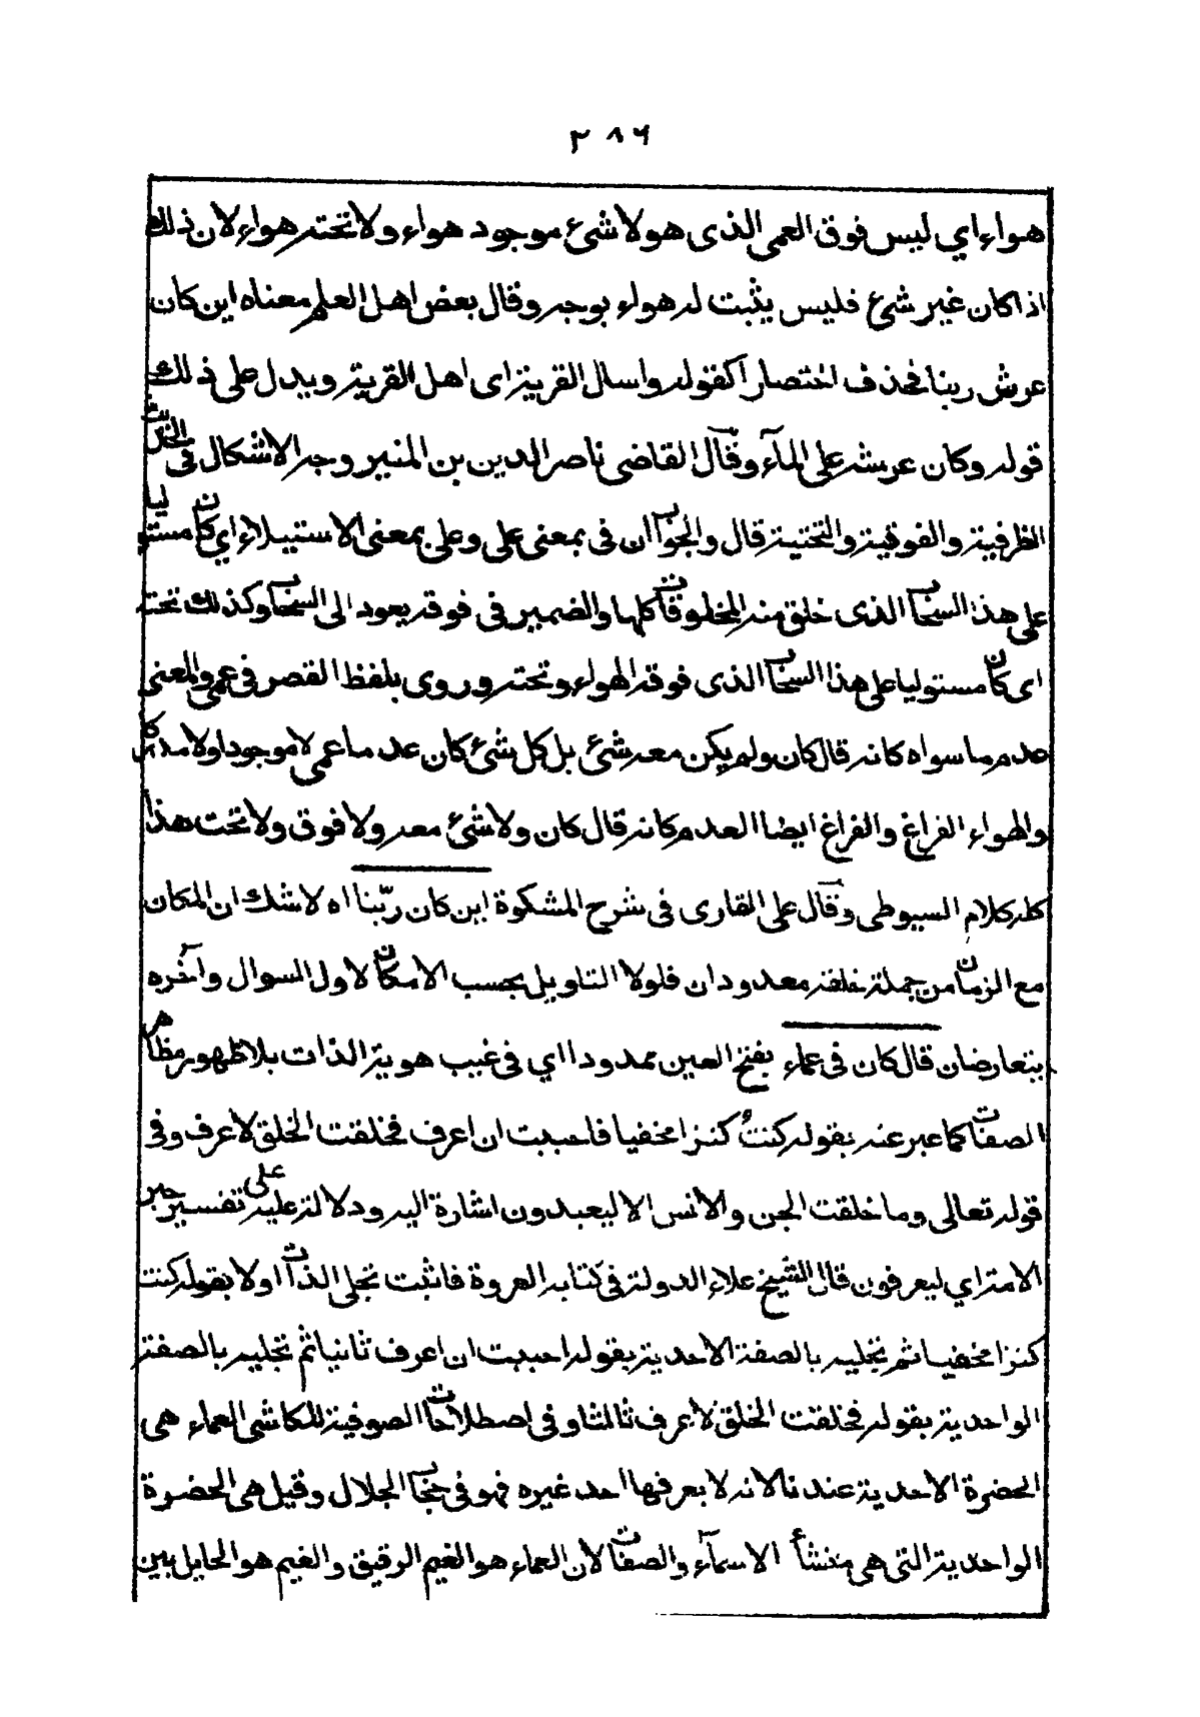 ٢٨٦
هواء اي ليس فوق العمى الذى هو لا شئ موجود هواء ولا تحته هواء لان ذلك
اذا كان غير شئ فليس يثبت له هواء بوجه وقال بعض اهل العلم معناه اين كان
عرش ربنا فحذف اختصارا كقوله واسال القرية اى اهل القرية ويدل على ذلك
قوله وكان عرشه على المآء وقال القاضى ناصر الدين بن المنير وجه الاشكال فى الحديث
الظرفية والفوقية والتحتية قال والجواب ان فى بمعنى على وعلى بمعنى الاستيلاء اي كان مستوليا
على هذا السحاب الذى خلق منه المخلوقات كلها والضمير فى فوقه يعود الى السحاب وكذلك تحته
اى كان مستوليا على هذا السحاب الذى فوقه الهواء وتحته وروى بلفظ القصر فى عمى والمعنى
عدم ما سواه كانه قال كان ولم يكن معه شئ بل كل شئ كان عدما عمى لا موجودا ولا مدركا
والهواء الفراغ والفراغ ايضا العدم كانه قال كان ولا شئ معه ولا فوق ولا تحت هذا
كله كلام السيوطى وقال على القارى فى شرح المشكوة اين كان ربّنا اه لا شك ان المكان
مع الزمان من جملة خلقه معدودان فلولا التاويل بحسب الامكان لاول السوال وآخره
يتعارضان قال كان فى عماء بفتح العين ممدودا اي فى غيب هوية الذات بلا ظهور مظاهر
الصفات كما عبر عنه بقوله كنتُ كنزا مخفيا فاحببت ان اعرف فخلقت الخلق لاعرف وفى
قوله تعالى وما خلقت الجن والانس الا ليعبدون اشارة اليه ودلالة عليه على تفسير حبر
الامة اي ليعرفون قال الشيخ علاء الدولة فى كتابه العروة فاثبت تجلى الذات اولا بقوله كنت
كنزا مخفيا ثم تجليه بالصفة الاحدية بقوله احببت ان اعرف ثانيا ثم تجليه بالصفة
الواحدية بقوله فخلقت الخلق لاعرف ثالثا وفى اصطلاحات الصوفية للكاشى العماء هى
الحضرة الاحدية عندنا لانه لا يعرفها احد غيره فهو فى حجاب الجلال وقيل هى الحضرة
الواحدية التى هى منشأ الاسمآء والصفات لان العماء هو الغيم الرقيق والغيم هو الحايل بين